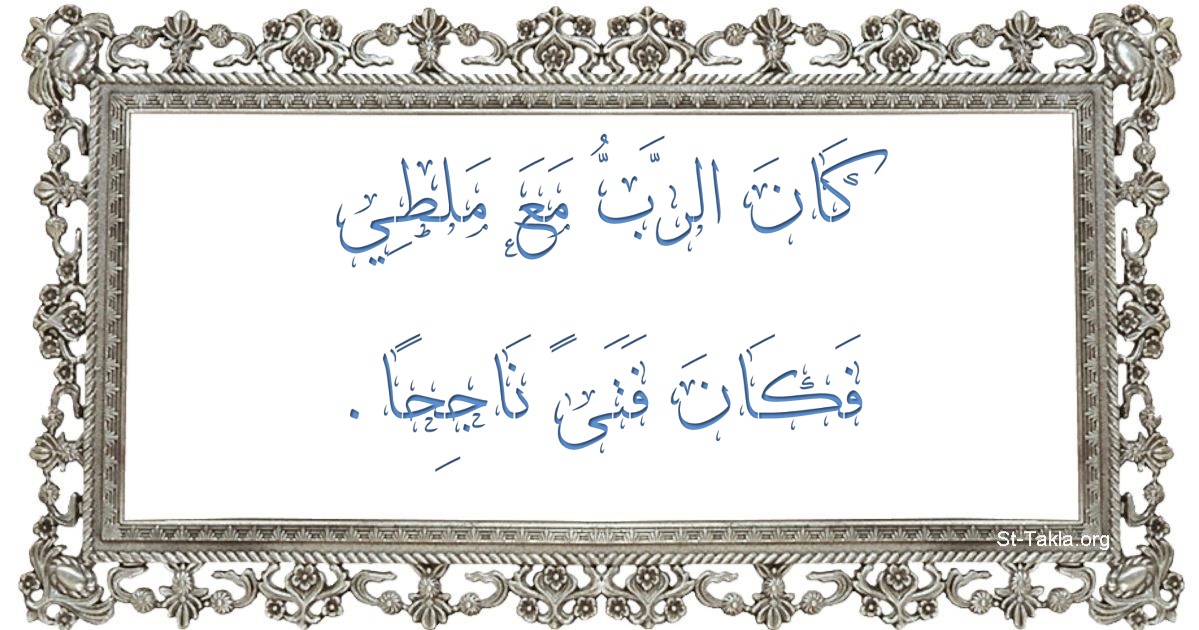 كَانَ الرَّبُّ مَعَ مَلَطِي
فَكَانَ فَتَىً نَاجِحًا .
St-Takla.org